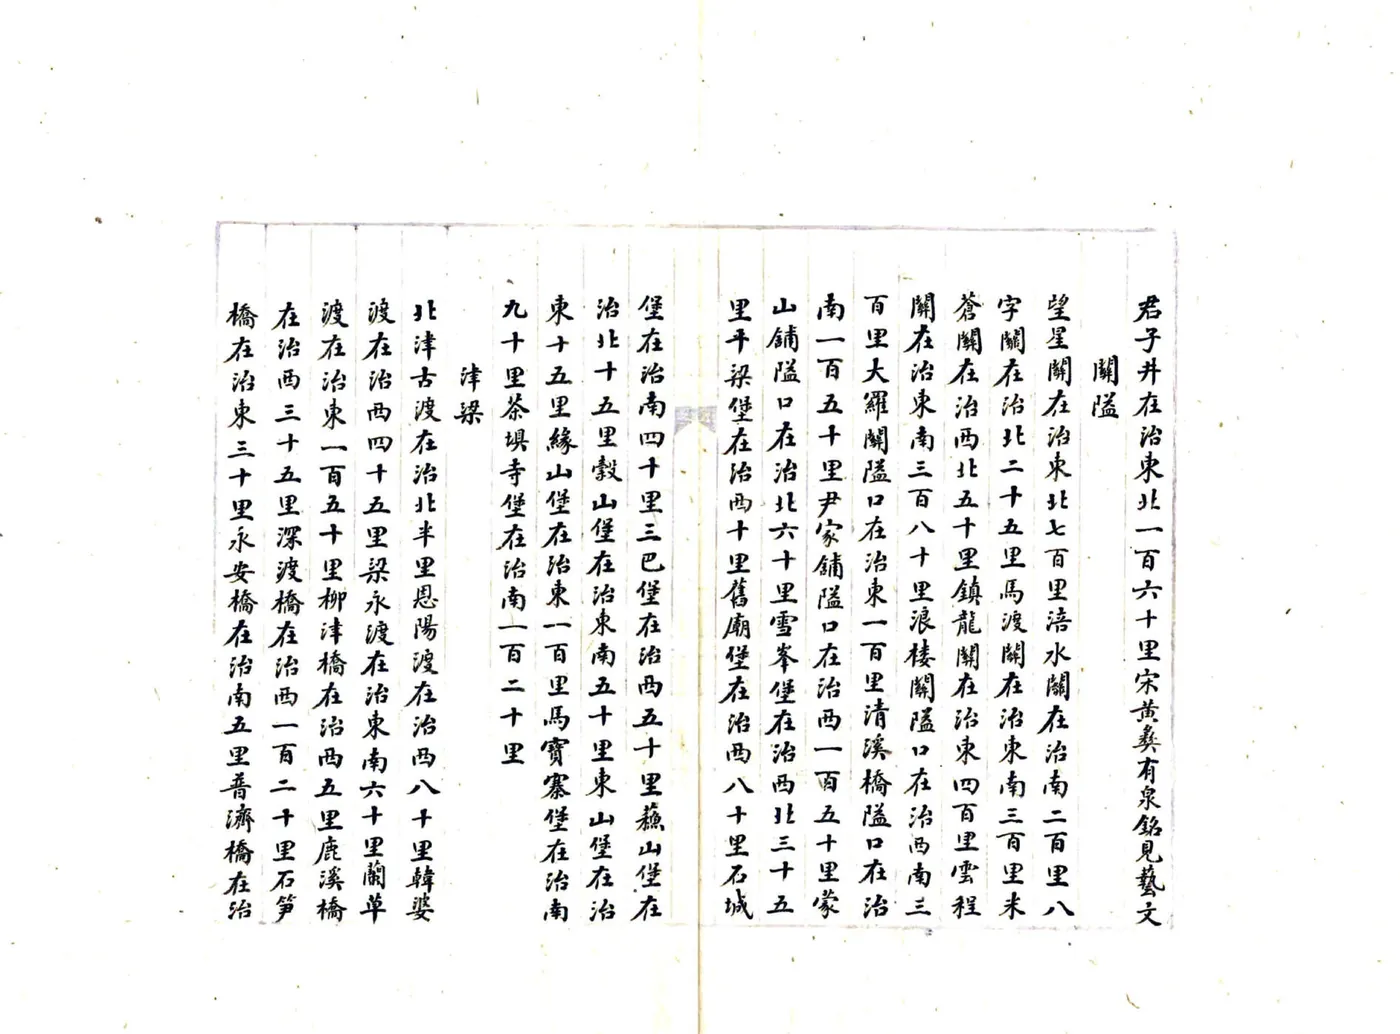 君子井在治東北一百六十里宋黃彝有泉銘見藝文
關隘
望星關在治東北七百里涪水關在治南二百里八
字關在治北二十五里馬渡關在治東南三百里米
蒼關在治西北五十里鎮龍關在治東四百里雲程
關在治東南三百八十里浪楼關隘口在治西南三
百里大羅關隘口在治東一百里清溪橋隘口在治
南一百五十里尹家舖隘口在治西一百五十里蒙
山舖隘口在治北六十里雪峯堡在治西北三十五
里平梁堡在治西十里舊廟堡在治西八十里石城
堡在治南四十里三巴堡在治西五十里蘸山堡在
治北十五里㲉山堡在治東南五十里東山堡在治
東十五里緣山堡在治東一百里馬寶寨堡在治南
九十里茶垻寺堡在治南一百二十里
津梁
北津古渡在治北半里恩陽渡在治西八十里韓婆
渡在治西四十五里梁永渡在治東南六十里蘭草
渡在治東一百五十里柳津橋在治西五里鹿溪橋
在治西三十五里深渡橋在治西一百二十里石笋
橋在治東三十里永安橋在治南五里普濟橋在治